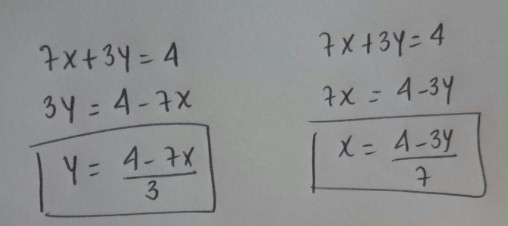 7x+3y=4
3y = 4-7x
y = 4-7x/3
7x+3y=4
7x = 4-3y
x = 4-3y/7